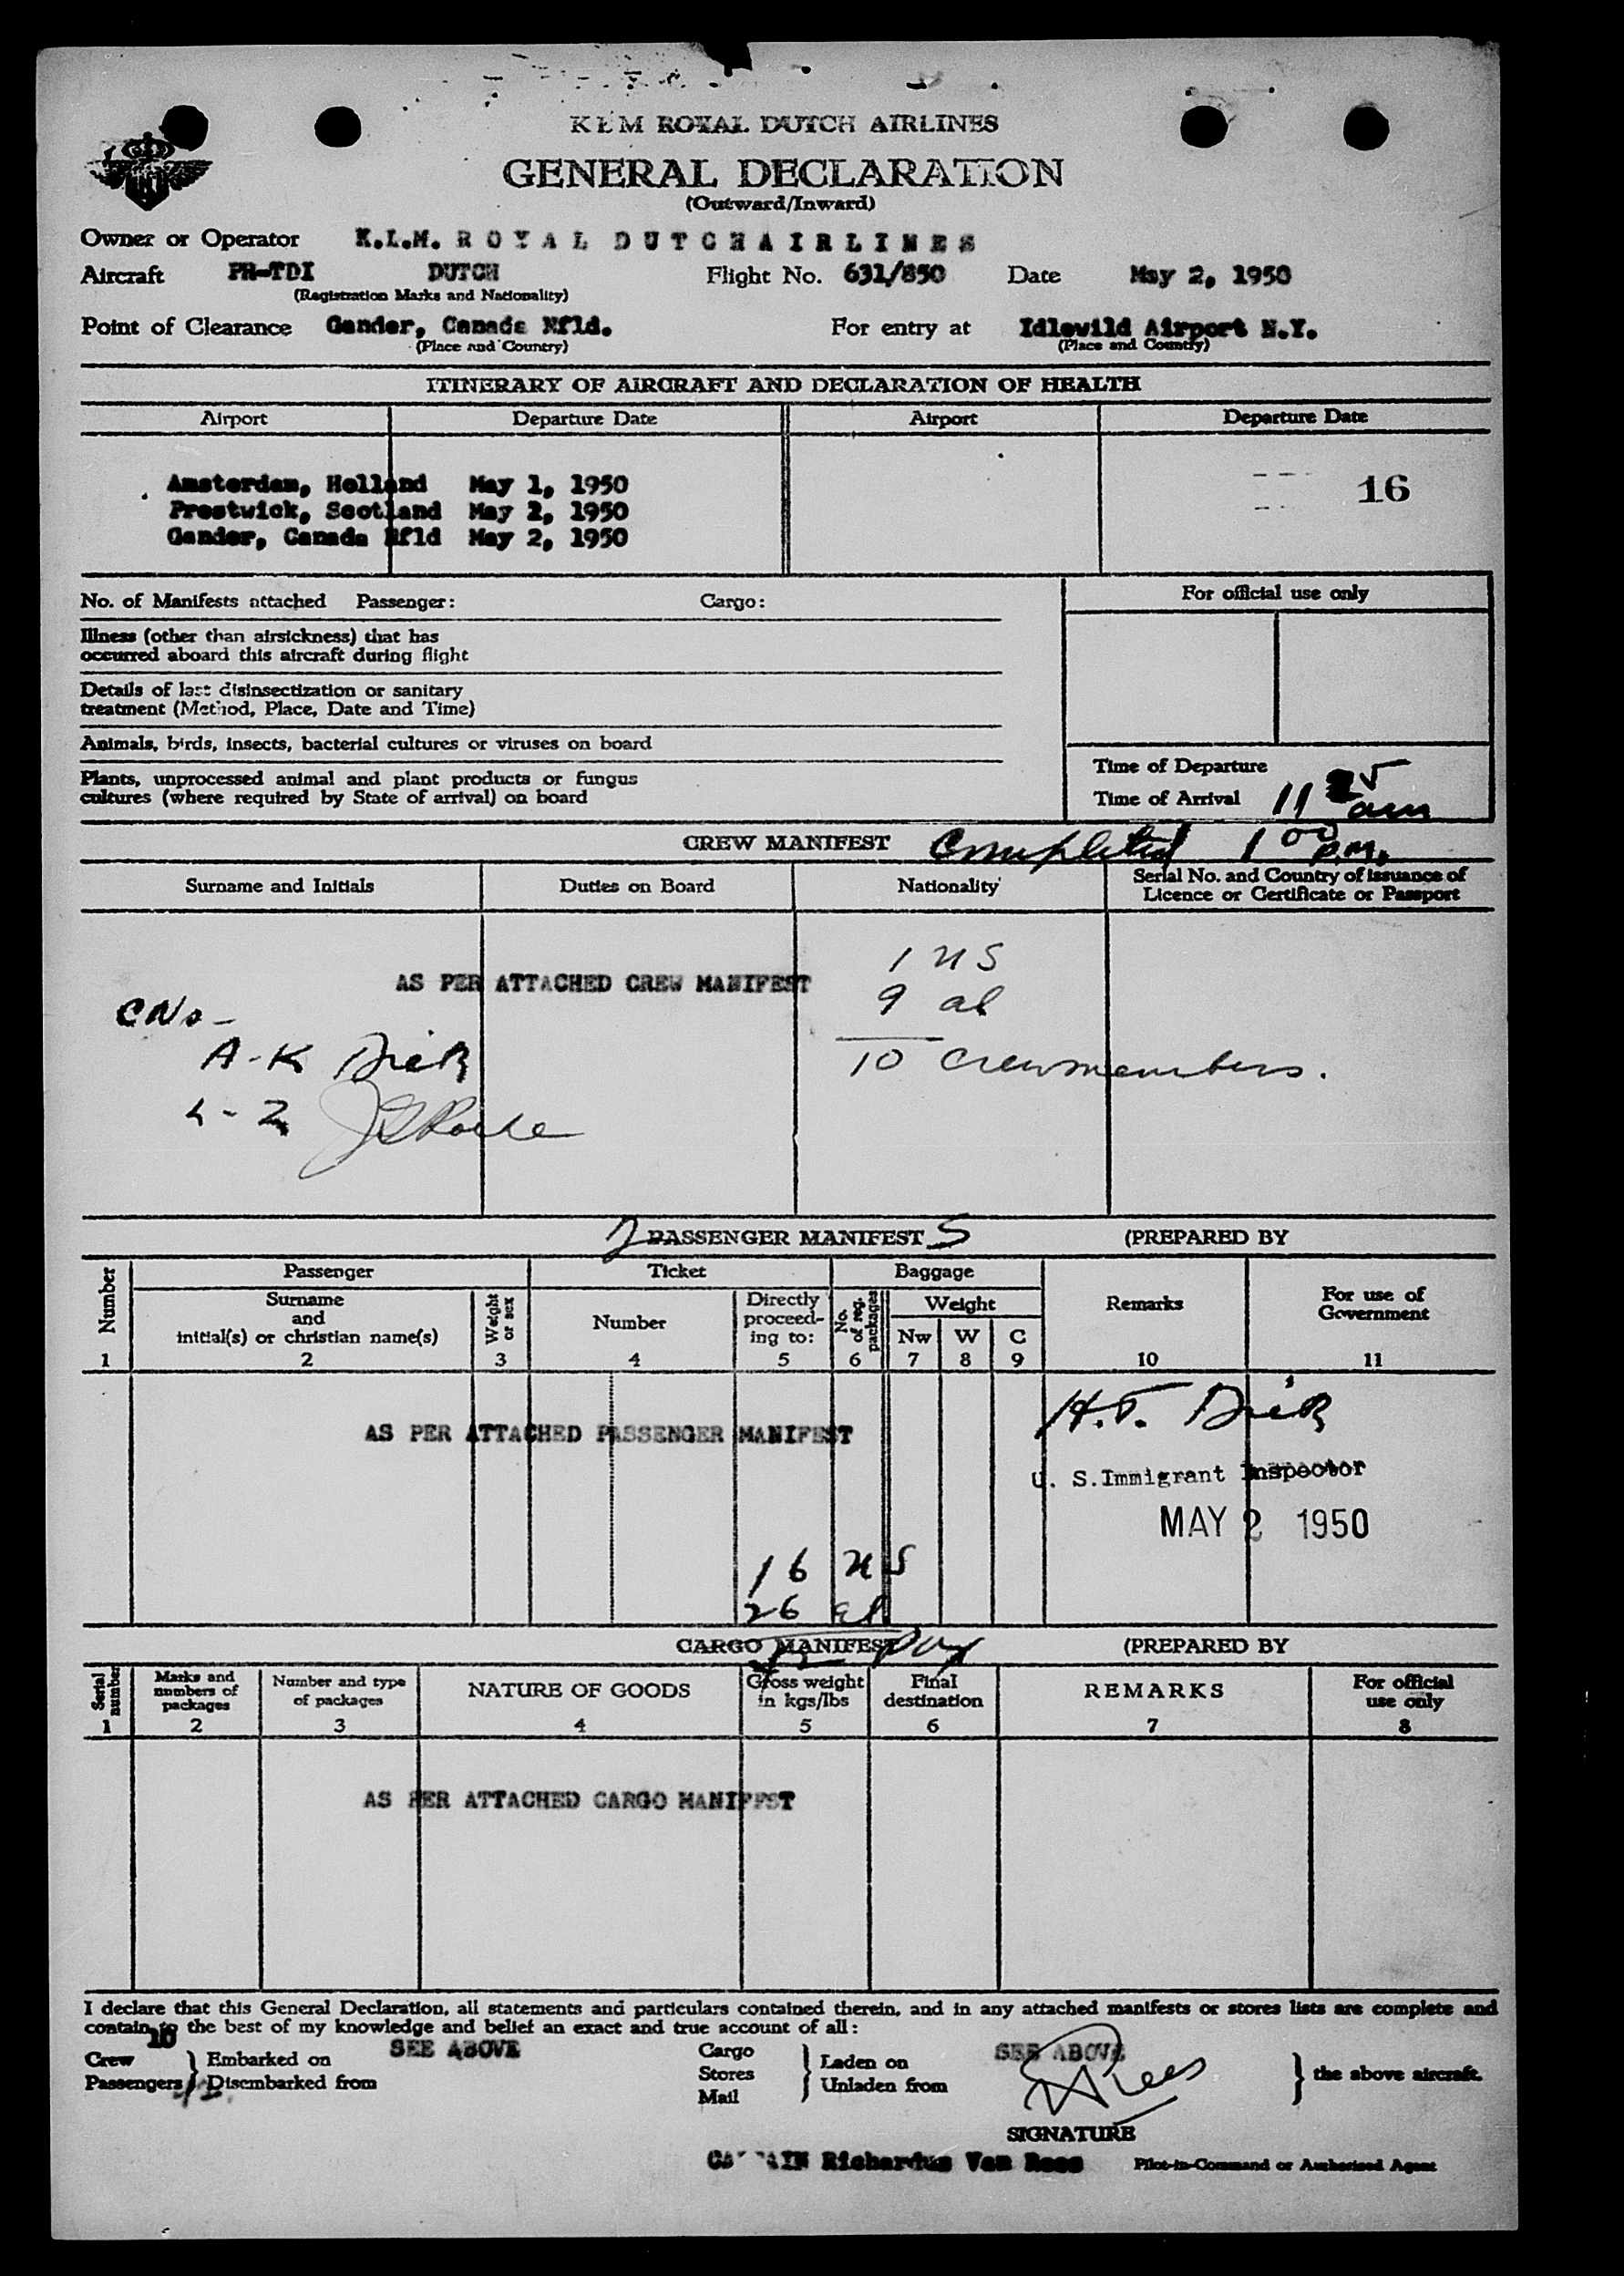 KLM ROYAL DUTCH AIRLINES
GENERAL DECLARATION
(Outward/Inward)
Owner or Operator K.L.M. R O Y A L D U T C H A I R L I N E S
Aircraft PH-TDI DUTCH Flight No. 631/850 Date May 2, 1950
(Registration Marks and Nationality)
Point of Clearance Gander, Canada Nfld. For entry at Idlewild Airport N.Y.
(Place and Country) (Place and Country)
ITINERARY OF AIRCRAFT AND DECLARATION OF HEALTH
Airport Departure Date Airport Departure Date
Amsterdam, Holland May 1, 1950 16
Prestwick, Scotland May 2, 1950
Gander, Canada Nfld May 2, 1950
No. of Manifests attached Passenger: Cargo: For official use only
Illness (other than airsickness) that has
occurred aboard this aircraft during flight
Details of last disinsectization or sanitary
treatment (Method, Place, Date and Time)
Animals, birds, insects, bacterial cultures or viruses on board
Plants, unprocessed animal and plant products or fungus
cultures (where required by State of arrival) on board
Time of Departure
Time of Arrival 11 25 am
CREW MANIFEST Completed 1 00 p.m.
Surname and Initials Duties on Board Nationality Serial No. and Country of issuance of
Licence or Certificate or Passport
1 US
AS PER ATTACHED CREW MANIFEST
9 al
CNs -
A-K Dick
10 crewmembers.
L-Z
2 PASSENGER MANIFEST S (PREPARED BY
Number Passenger Ticket Baggage Remarks For use of
Government
Surname
and
initial(s) or christian name(s) Weight or sex Number Directly
proceed-
ing to: No. of reg. packages Weight
Nw W C
1 2 3 4 5 6 7 8 9 10 11
H.T. Dick
AS PER ATTACHED PASSENGER MANIFEST
U. S. Immigrant Inspector
MAY 2 1950
16 US
26 al
CARGO MANIFEST (PREPARED BY
Serial number Marks and
numbers of
packages Number and type
of packages NATURE OF GOODS Gross weight
in kgs/lbs Final
destination REMARKS For official
use only
1 2 3 4 5 6 7 8
AS PER ATTACHED CARGO MANIFEST
I declare that this General Declaration, all statements and particulars contained therein, and in any attached manifests or stores lists are complete and
contain to the best of my knowledge and belief an exact and true account of all:
10 SEE ABOVE SEE ABOVE
Crew Embarked on Cargo Laden on
Passengers Disembarked from Stores Unladen from the above aircraft.
Mail
SIGNATURE
CAPTAIN Richardus Van Rees Pilot-in-Command or Authorised Agent